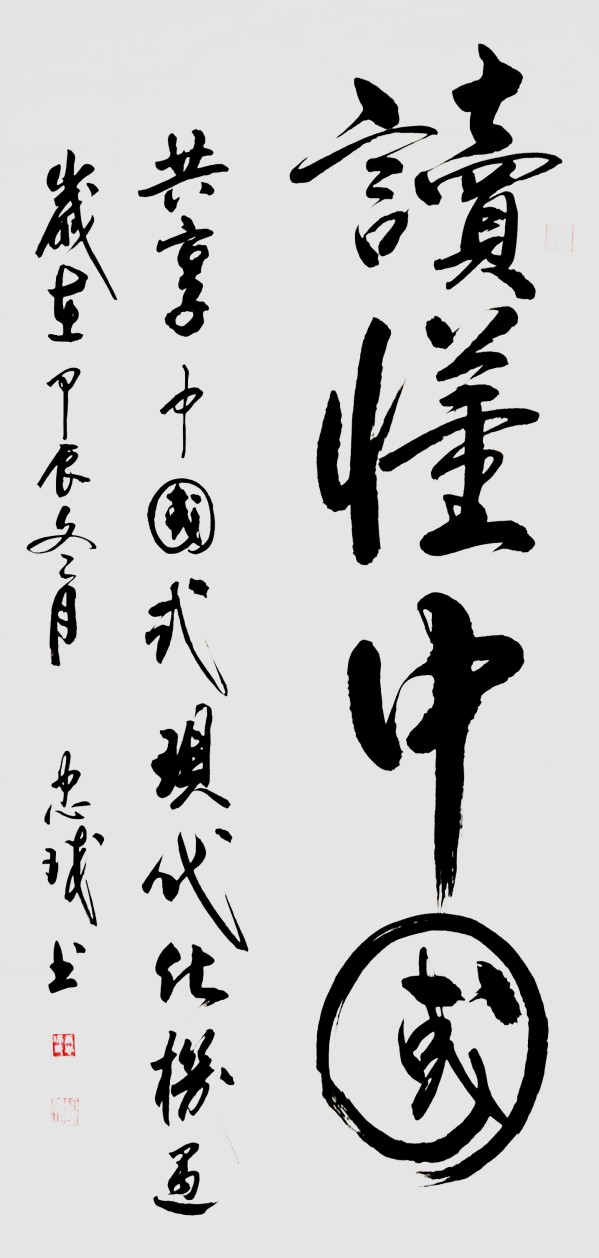 讀懂中國
共享中國式現代化機遇
歲在甲辰冬月 忠琙书